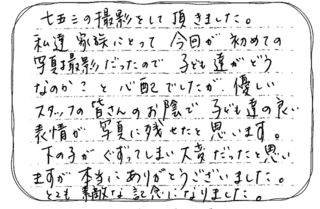 七五三の撮影をして頂きました。
私達家族にとって今回が初めての
写真撮影だったので子ども達がどう
なのか?と心配でしたが、優しい
スタッフの皆さんのお陰で子ども達の良い
表情が写真に残せたと思います。
下の子がぐずってしまい大変だったと思い
ますが本当にありがとうございました。
とても素敵な記念になりました。